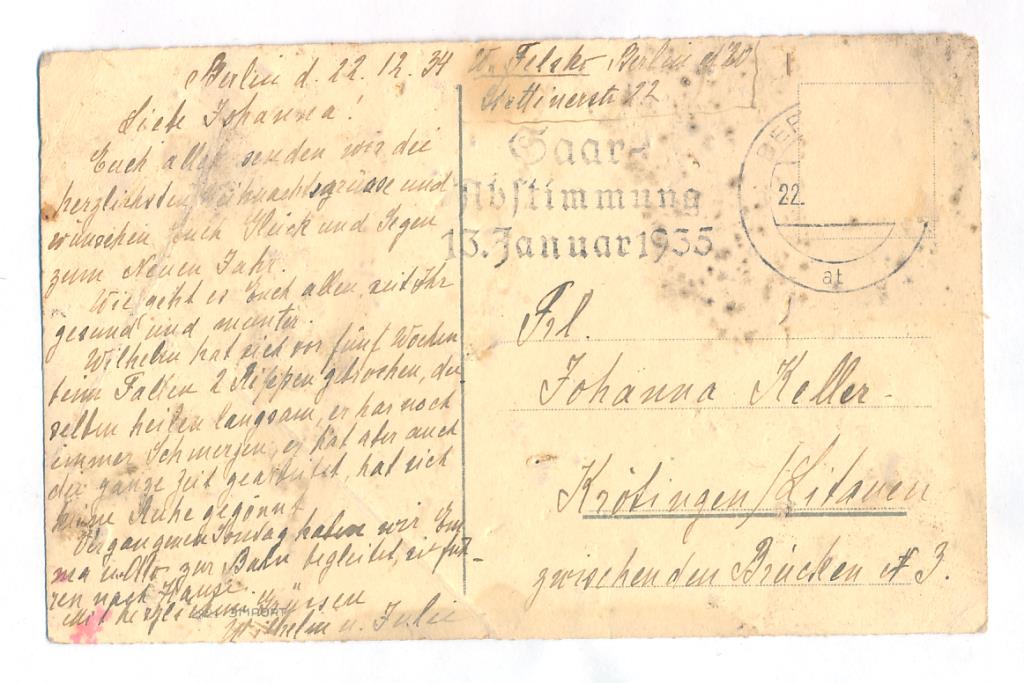 Berlin d. 22.12.34
Liebe Johanna!
Euch allen senden wir die
herzlichsten Weihnachtsgrüsse und
wünschen Euch Glück und Segen
zum Neuen Jahr.
Wie geht es Euch allen, seit Ihr
gesund und munter.
Wilhelm hat sich vor fünf Wochen
beim Fallen 2 Rippen gebrochen, die
selben heilen langsam, er hat noch
immer Schmerzen, er hat aber auch
die ganze Zeit gearbeitet, hat sich
keine Ruhe gegönnt
Vergangenen Sonntag haben wir Em
ma u. Otto zur Bahn begleitet, sie fuh-
ren nach Hause.
mit herzlichen Grüssen
Wilhelm u. Julie
W. Felsko Berlin N 20
Stettinerstr 22
Saar-
Abstimmung
13. Januar 1935
BER
22.
at
Frl.
Johanna Keller-
Krötingen/Litauen
zwischen den Brücken № 3.